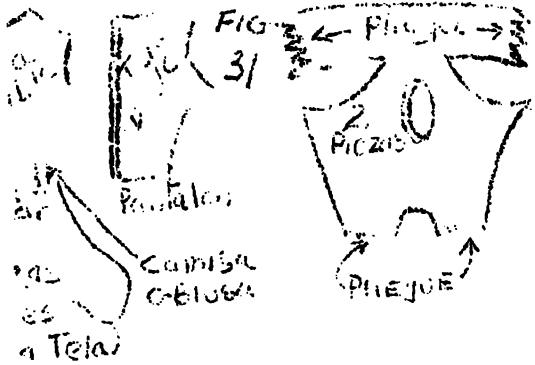 FIG
31
Pliegue
2
Piezas
Pantalon
Camisa
o Blusa
PliEguE
as
es
a Tela